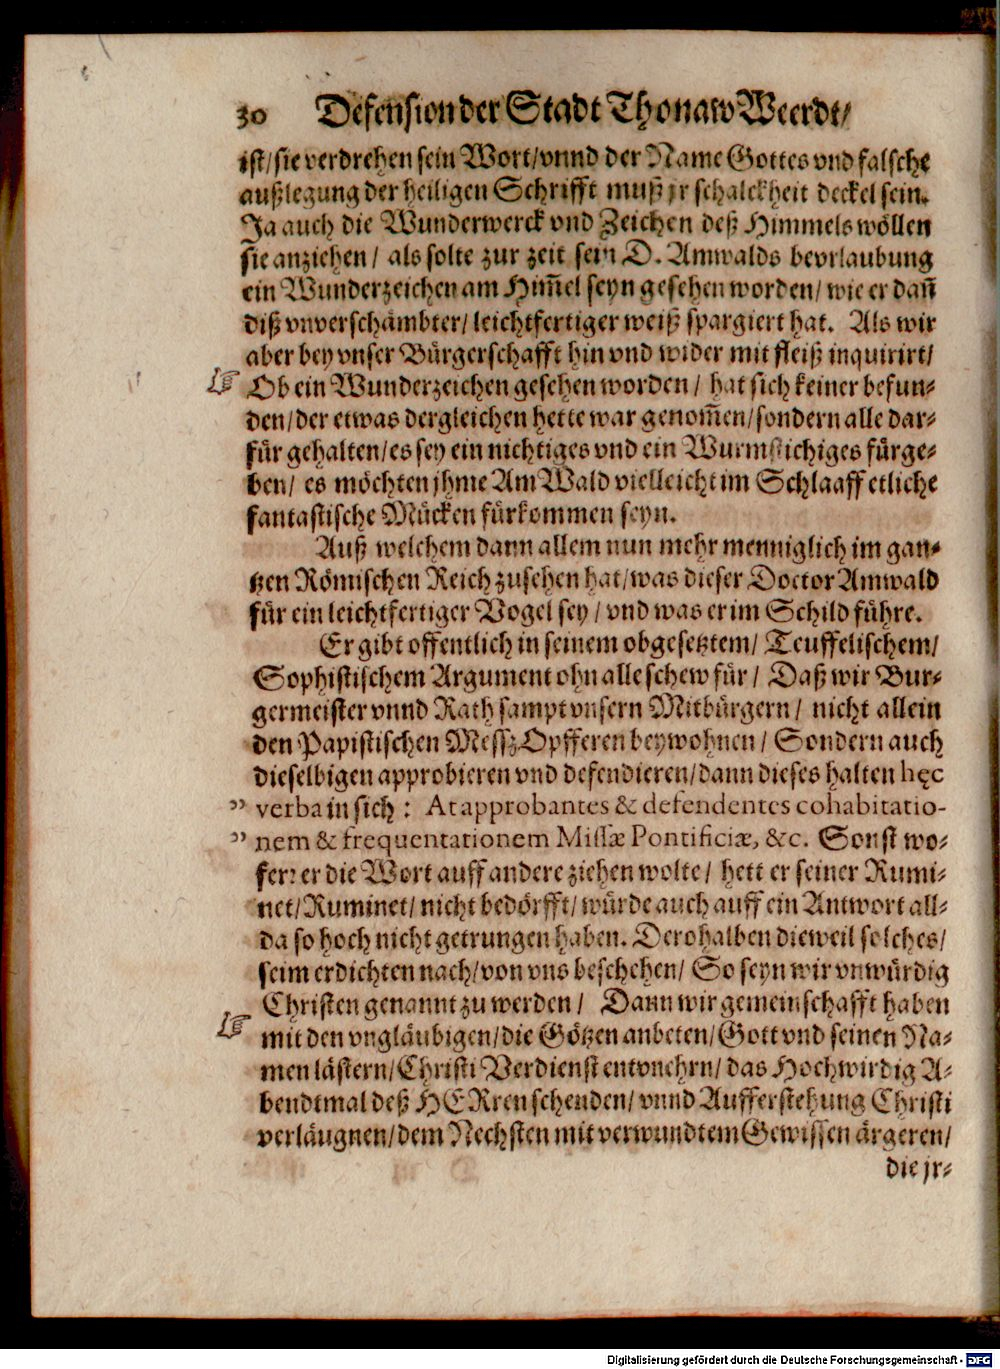 30 Defension der Stadt Thonaw Weerdt/
ist/ sie verdrehen sein Wort/ vnnd der Name Gottes vnd falsche
außlegung der heiligen Schrifft muß jr schalckheit deckel sein.
Ja auch die Wunderwerck vnd Zeichen deß Himmels wöllen
sie anziehen/ als solte zur zeit sein D. Amwalds bevrlaubung
ein Wunderzeichen am Him̃el seyn gesehen worden/ wie er dañ
diß vnverschämbter/ leichtfertiger weiß spargiert hat. Als wir
aber bey vnser Bürgerschafft hin vnd wider mit fleiß inquirirt/
Ob ein Wunderzeichen gesehen worden/ hat sich keiner befun-
den/ der etwas dergleichen hette war genom̃en/ sondern alle dar-
für gehalten/ es sey ein nichtiges vnd ein Wurmstichiges fürge-
ben/ es möchten jhme Am Wald vielleicht im Schlaaff etliche
fantastische Mücken fürkommen seyn.
Auß welchem dann allem nun mehr menniglich im gan-
tzen Römischen Reich zusehen hat/ was dieser Doctor Amwald
für ein leichtfertiger Vogel sey/ vnd was er im Schild führe.
Er gibt offentlich in seinem obgesetztem/ Teuffelischem/
Sophistischem Argument ohn alle schew für/ Daß wir Bur-
germeister vnnd Rath sampt vnsern Mitbürgern/ nicht allein
den Papistischen Messz Opfferen beywohnen/ Sondern auch
dieselbigen approbieren vnd defendieren/ dann dieses halten hęc
" verba in sich: At approbantes & defendentes cohabitatio-
" nem & frequentationem Missæ Pontificiæ, &c. Sonst wo-
fern er die Wort auff andere ziehen wolte/ hett er seiner Rumi-
net/ Ruminet/ nicht bedörfft/ würde auch auff ein Antwort all-
da so hoch nicht getrungen haben. Derohalben dieweil solches/
seim erdichten nach/ von vns beschehen/ So seyn wir vnwürdig
Christen genannt zu werden/ Dann wir gemeinschafft haben
mit den vngläubigen/ die Götzen anbeten/ Gott vnd seinen Na-
men lästern/ Christi Verdienst entvnehrn/ das Hochwirdig A-
bendtmal deß HERren schenden/ vnnd Aufferstehung Christi
verläugnen/ dem Nechsten mit verwundtem Gewissen ärgeren/
die jr-
Digitalisierung gefördert durch die Deutsche Forschungsgemeinschaft - DFG